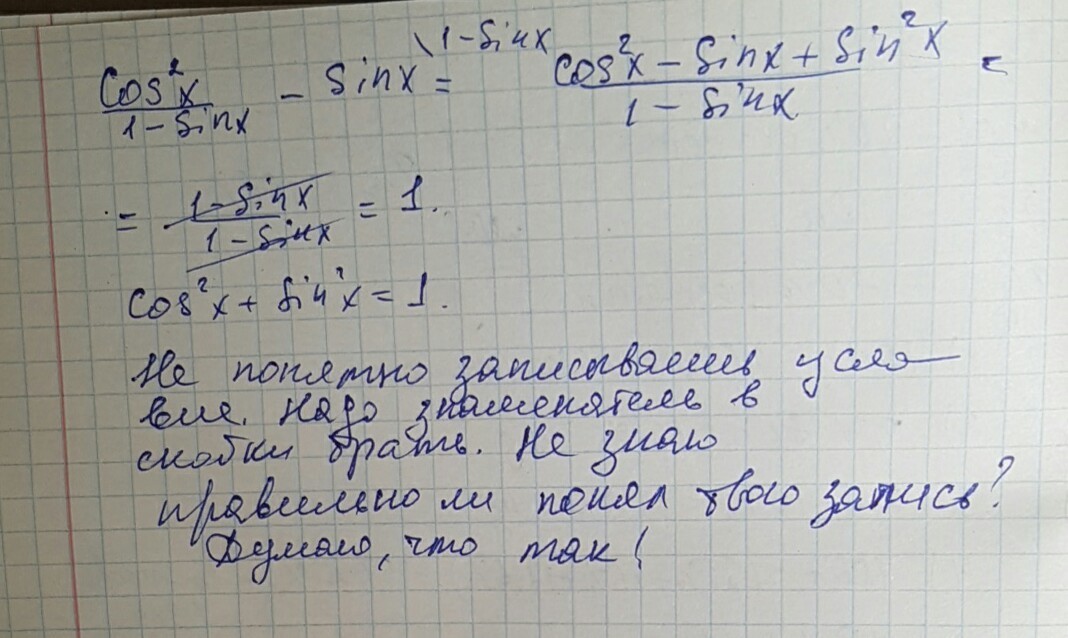 cos²x / (1 - sinx) - sinx \ 1-sinx = (cos²x - sinx + sin²x) / (1 - sinx) =
= (1 - sinx) / (1 - sinx) = 1.
cos²x + sin²x = 1.
Не понятно записываешь усло-
вие. Надо знаменатель в
скобки брать. Не знаю
правильно ли понял твою запись?
Думаю, что так!